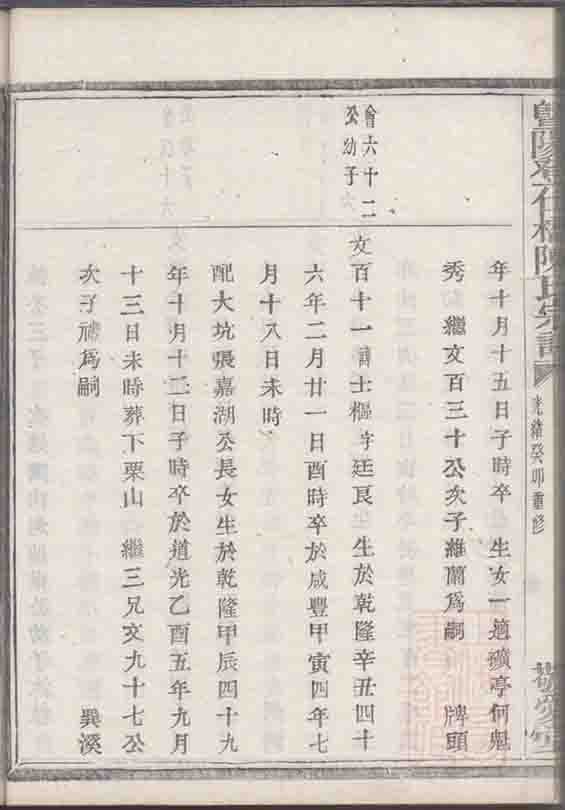 暨陽
陳氏宗譜
光緒癸卯重修
年十月十五日子時卒 生女一適礦亭何魁
秀 繼文百三十公次子維蘭爲嗣 牌頭
會六十二
公幼子
文百十一 諱士樞字廷良 生於乾隆辛丑四十
六年二月廿一日酉時卒於咸豐甲寅四年七
月十八日未時
配大坑張嘉湖公長女生於乾隆甲辰四十九
年十月十二日子時卒於道光乙酉五年九月
十三日未時葬下栗山 繼三兄文九十七公
次子 爲嗣 巽溪